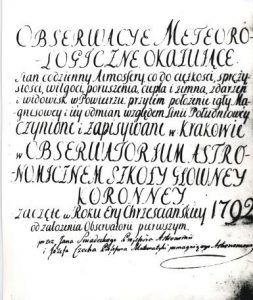 OBSERWACYE METEORO-
-LOGICZNE OKAZUIĄCE.
Stan codzienny Atmosfery co do ciężkości, spręży-
stości, wilgoci, poruszenia, ciepła i zimna, zdarzeń
i widowisk w Powietrzu. przytem położenie igły Ma-
gnesowey i iey odmian względem Linii Południowey
CZYNIONE i ZAPISYWANE w KRAKOWIE
w OBSERWATORIUM ASTRO-
NOMICZNEM SZKOŁY GŁOWNEY
KORONNEY
zaczęte w Roku Ery Chrześciańskiey 1792
od założenia Obserwatorii pierwszym.
przez Jana Śniadeckiego Professora Astronomii
i Józefa Czecha Professora Matematyki pomagaiącego Astronomowi